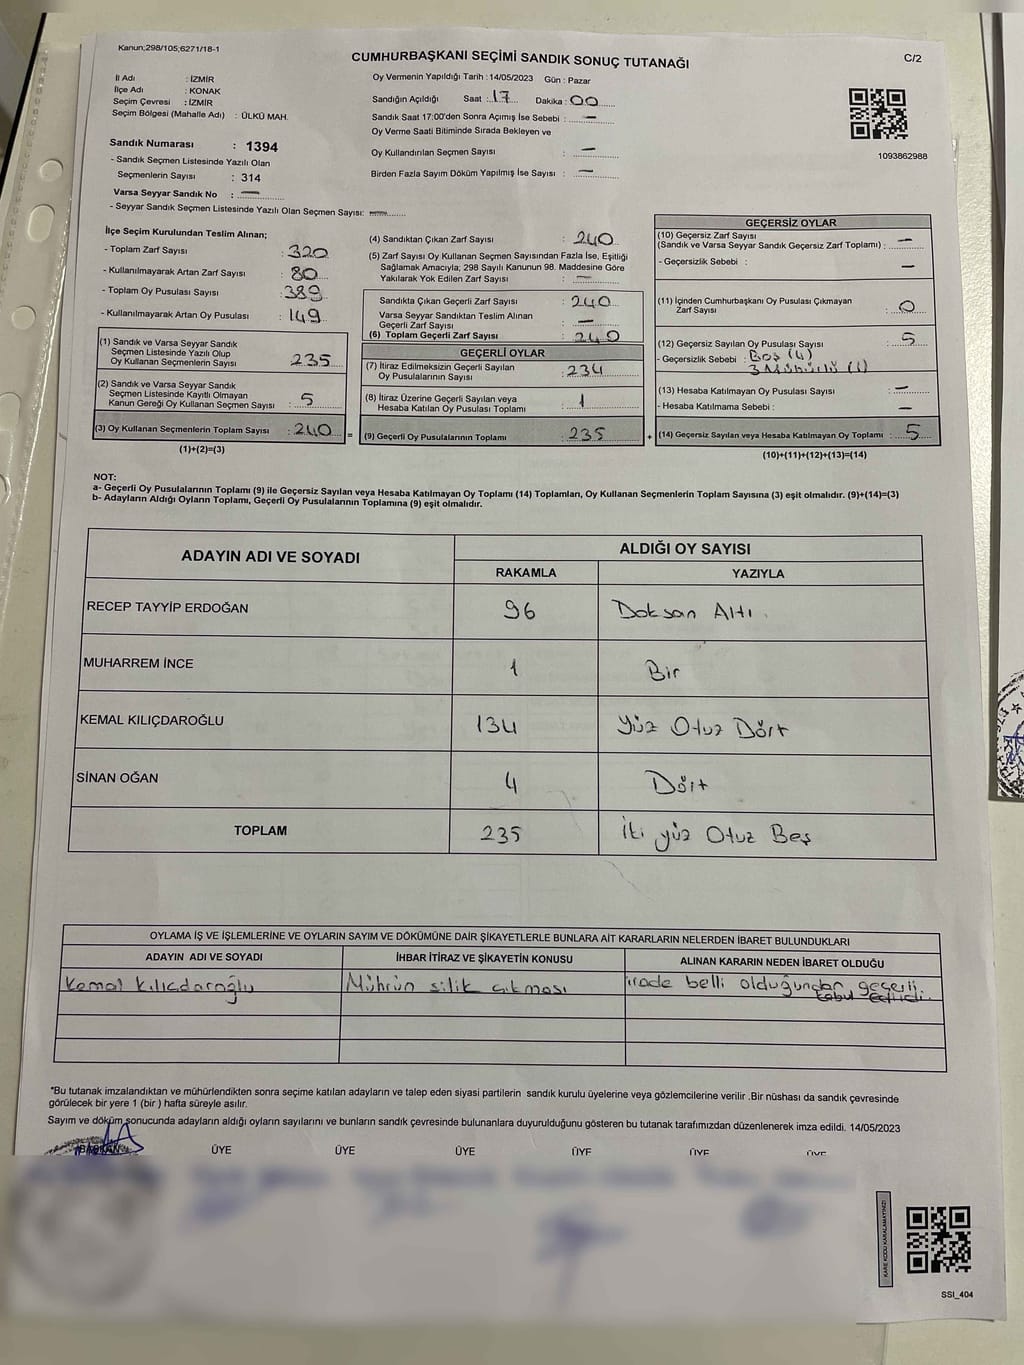 Kanun;298/105;6271/18-1
CUMHURBAŞKANI SEÇİMİ SANDIK SONUÇ TUTANAĞI
C/2
İl Adı : İZMİR
İlçe Adı : KONAK
Seçim Çevresi : İZMİR
Seçim Bölgesi (Mahalle Adı) : ÜLKÜ MAH.
Sandık Numarası : 1394
- Sandık Seçmen Listesinde Yazılı Olan
Seçmenlerin Sayısı : 314
Varsa Seyyar Sandık No : —
- Seyyar Sandık Seçmen Listesinde Yazılı Olan Seçmen Sayısı: —
Oy Vermenin Yapıldığı Tarih : 14/05/2023 Gün : Pazar
Sandığın Açıldığı Saat : 17 Dakika : 00
Sandık Saat 17:00'den Sonra Açımış İse Sebebi : —
Oy Verme Saati Bitiminde Sırada Bekleyen ve
Oy Kullandırılan Seçmen Sayısı : —
Birden Fazla Sayım Döküm Yapılmış İse Sayısı : —
1093862988
İlçe Seçim Kurulundan Teslim Alınan;
- Toplam Zarf Sayısı : 320
- Kullanılmayarak Artan Zarf Sayısı : 80
- Toplam Oy Pusulası Sayısı : 389
- Kullanılmayarak Artan Oy Pusulası : 149
(1) Sandık ve Varsa Seyyar Sandık
Seçmen Listesinde Yazılı Olup
Oy Kullanan Seçmenlerin Sayısı : 235
(2) Sandık ve Varsa Seyyar Sandık
Seçmen Listesinde Kayıtlı Olmayan
Kanun Gereği Oy Kullanan Seçmen Sayısı : 5
(3) Oy Kullanan Seçmenlerin Toplam Sayısı : 240
(1)+(2)=(3)
=
(4) Sandıktan Çıkan Zarf Sayısı : 240
(5) Zarf Sayısı Oy Kullanan Seçmen Sayısından Fazla İse, Eşitliği
Sağlamak Amacıyla; 298 Sayılı Kanunun 98. Maddesine Göre
Yakılarak Yok Edilen Zarf Sayısı : —
Sandıkta Çıkan Geçerli Zarf Sayısı : 240
Varsa Seyyar Sandıktan Teslim Alınan
Geçerli Zarf Sayısı : —
(6) Toplam Geçerli Zarf Sayısı : 240
GEÇERLİ OYLAR
(7) İtiraz Edilmeksizin Geçerli Sayılan
Oy Pusulalarının Sayısı : 234
(8) İtiraz Üzerine Geçerli Sayılan veya
Hesaba Katılan Oy Pusulası Toplamı : 1
(9) Geçerli Oy Pusulalarının Toplamı : 235
+
GEÇERSİZ OYLAR
(10) Geçersiz Zarf Sayısı
(Sandık ve Varsa Seyyar Sandık Geçersiz Zarf Toplamı) : —
- Geçersizlik Sebebi : —
(11) İçinden Cumhurbaşkanı Oy Pusulası Çıkmayan
Zarf Sayısı : 0
(12) Geçersiz Sayılan Oy Pusulası Sayısı : 5
- Geçersizlik Sebebi : Boş (4)
3 Mühürlü (1)
(13) Hesaba Katılmayan Oy Pusulası Sayısı : —
- Hesaba Katılmama Sebebi : —
(14) Geçersiz Sayılan veya Hesaba Katılmayan Oy Toplamı : 5
(10)+(11)+(12)+(13)=(14)
NOT:
a- Geçerli Oy Pusulalarının Toplamı (9) ile Geçersiz Sayılan veya Hesaba Katılmayan Oy Toplamı (14) Toplamları, Oy Kullanan Seçmenlerin Toplam Sayısına (3) eşit olmalıdır. (9)+(14)=(3)
b- Adayların Aldığı Oyların Toplamı, Geçerli Oy Pusulalarının Toplamına (9) eşit olmalıdır.
ADAYIN ADI VE SOYADI
ALDIĞI OY SAYISI
RAKAMLA YAZIYLA
RECEP TAYYİP ERDOĞAN 96 Doksan Altı
MUHARREM İNCE 1 Bir
KEMAL KILIÇDAROĞLU 134 Yüz Otuz Dört
SİNAN OĞAN 4 Dört
TOPLAM 235 İki yüz Otuz Beş
OYLAMA İŞ VE İŞLEMLERİNE VE OYLARIN SAYIM VE DÖKÜMÜNE DAİR ŞİKAYETLERLE BUNLARA AİT KARARLARIN NELERDEN İBARET BULUNDUKLARI
ADAYIN ADI VE SOYADI İHBAR İTİRAZ VE ŞİKAYETİN KONUSU ALINAN KARARIN NEDEN İBARET OLDUĞU
Kemal Kılıçdaroğlu Mührün silik çıkması irade belli olduğundan geçerli
kabul Edildi.
*Bu tutanak imzalandıktan ve mühürlendikten sonra seçime katılan adayların ve talep eden siyasi partilerin sandık kurulu üyelerine veya gözlemcilerine verilir .Bir nüshası da sandık çevresinde
görülecek bir yere 1 (bir ) hafta süreyle asılır.
Sayım ve döküm sonucunda adayların aldığı oyların sayılarını ve bunların sandık çevresinde bulunanlara duyurulduğunu gösteren bu tutanak tarafımızdan düzenlenerek imza edildi. 14/05/2023
BAŞKAN ÜYE ÜYE ÜYE ÜYE ÜYE ÜYE
KARE KODU KARALAMAYINIZ!
SSI_404